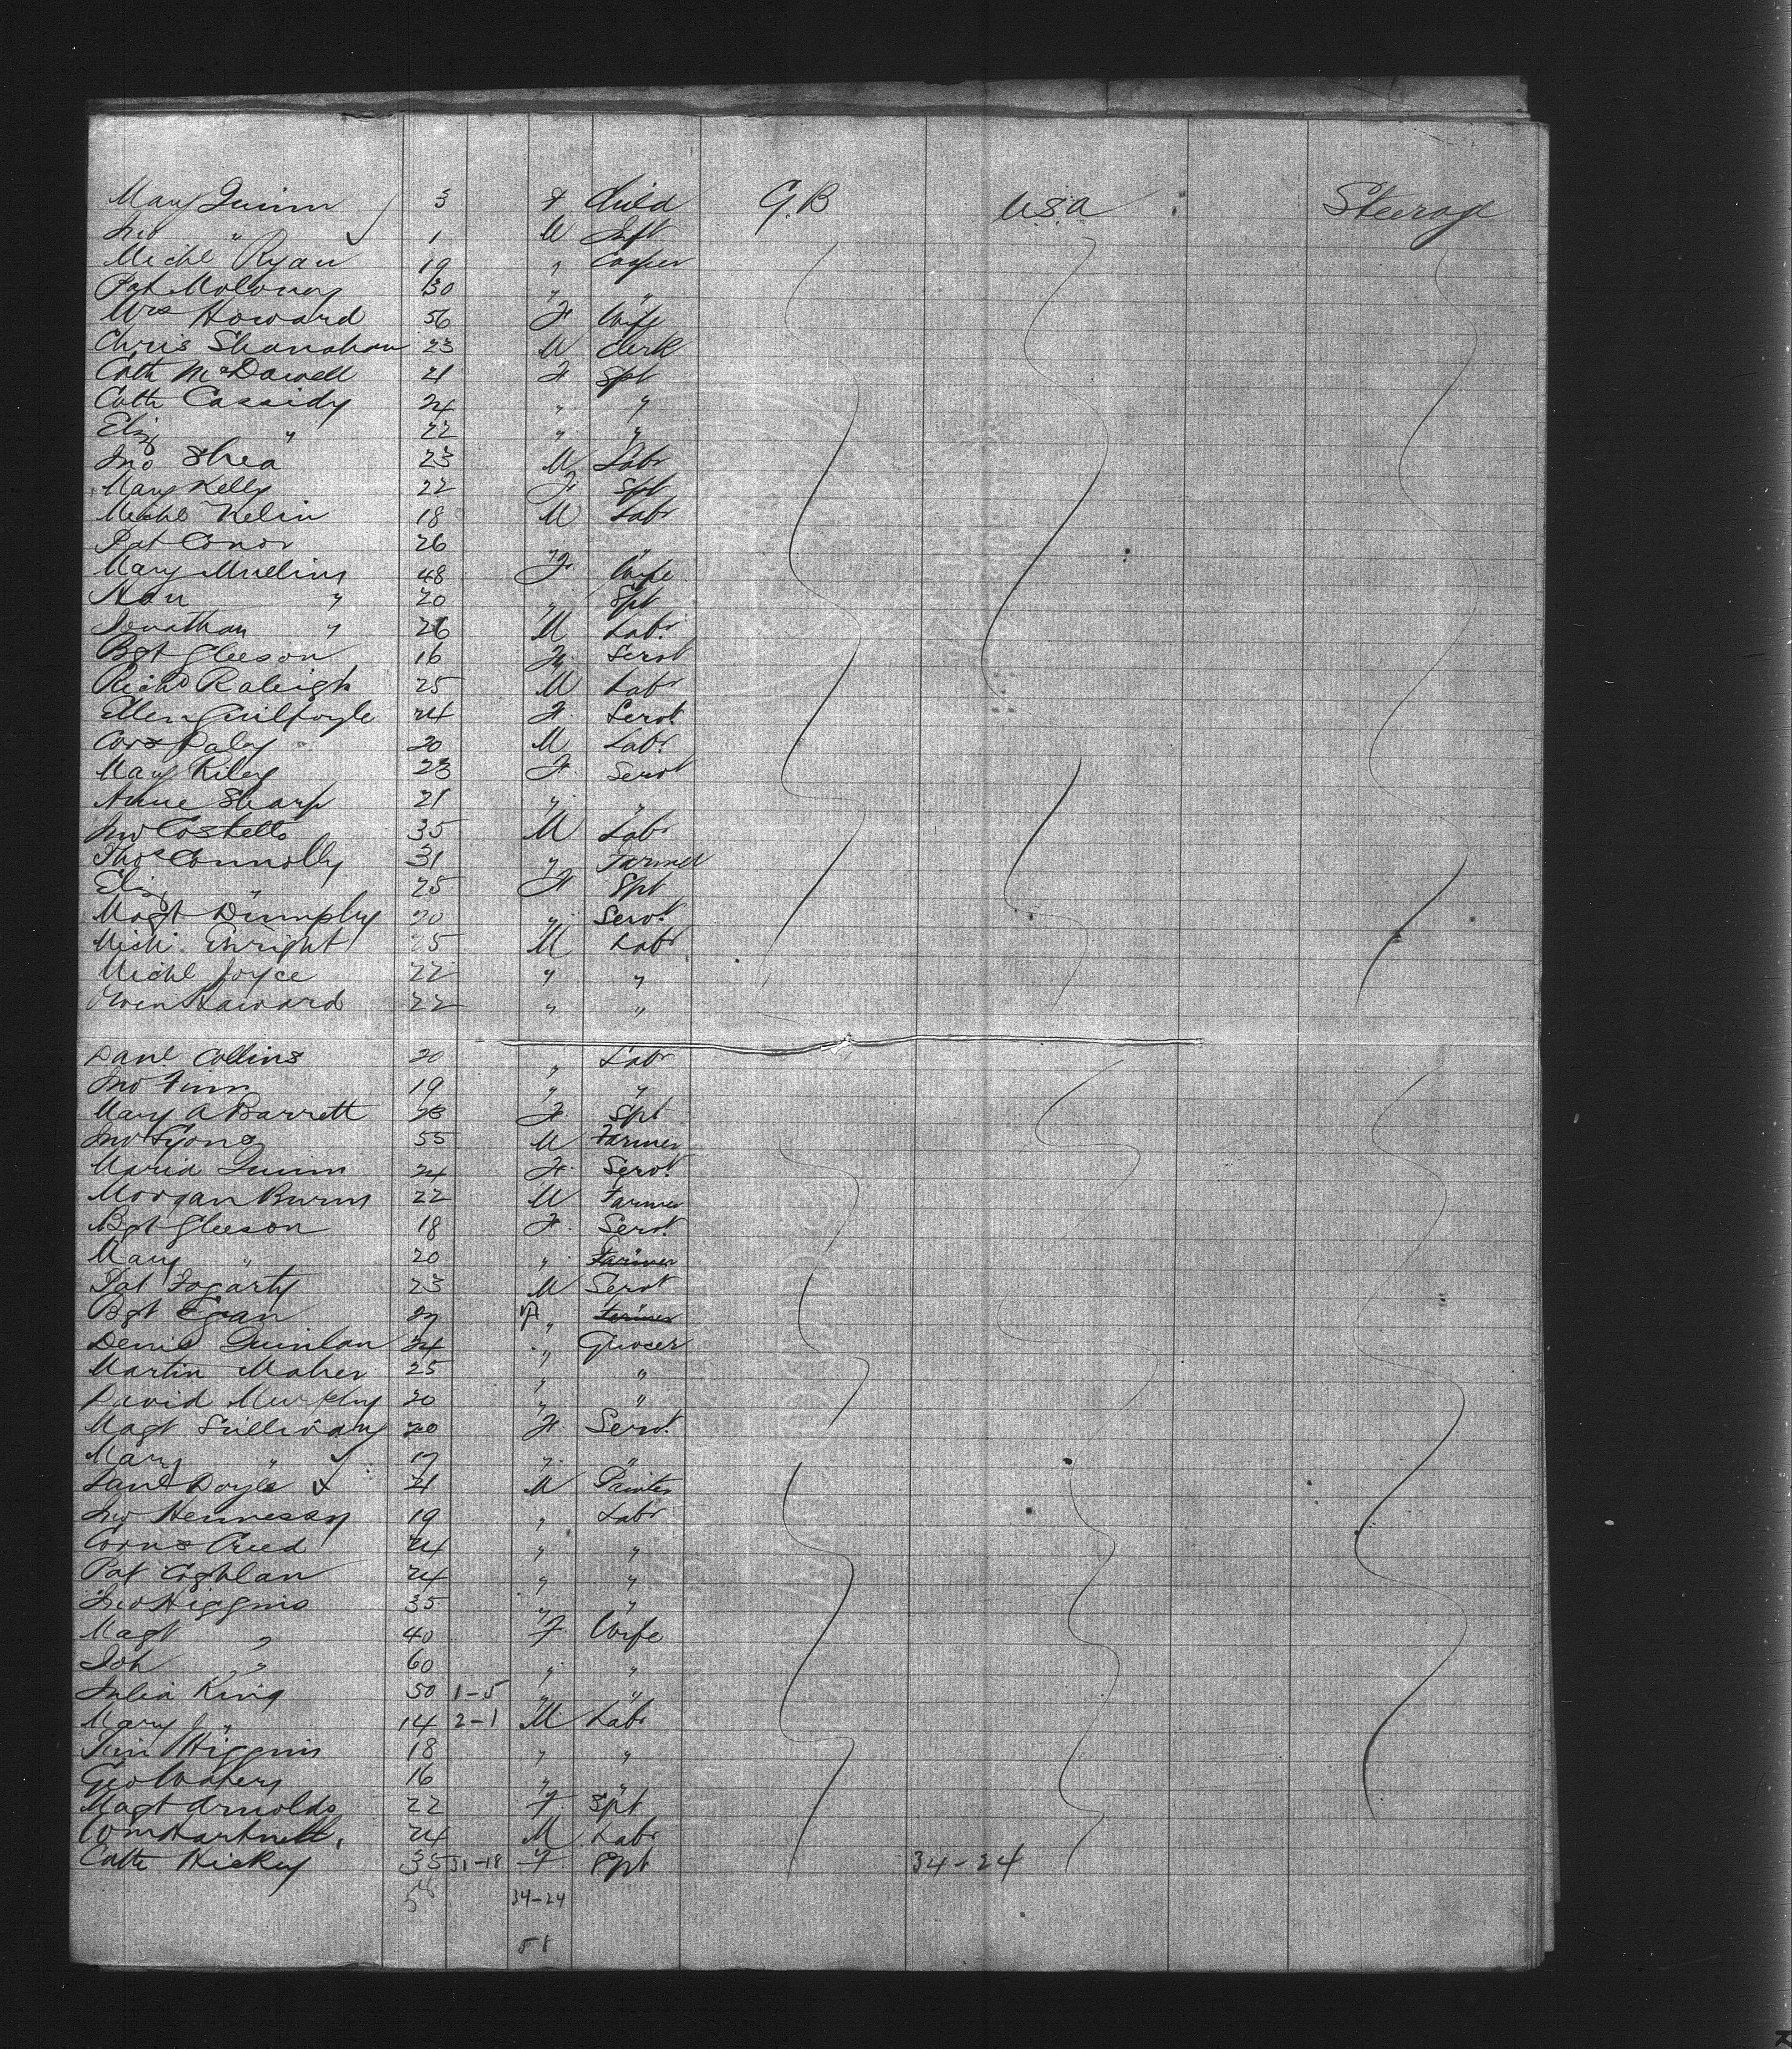 Mary Quinn 3 F Child G.B U.S.A Steerage
Jno " 1 M Inft
Michl Ryan 19 " Cooper
Pat Moloney 30 " "
Mrs Howard 56 F Wife
Chris Shanahan 23 M Clerk
Cath McDowell 21 F Spt
Cath Cassidy 24 " "
Eliz " 22 " "
Jno Shea 23 M Labr
Mary Kelly 22 F Spt
Michl 18 M Labr
Pat Conor 26 " "
Mary Mullins 48 F Wife
Han " 20 " Spt
Jonathan " 26 M Labr
Bgt Gleeson 16 F Servt
Richd Raleigh 25 M Labr
Ellen Guilfoyle 24 F Servt
Cors Daly 20 M Labr
Mary Riley 23 F Servt
Anne Sharp 21 " "
Jno Costello 35 M Labr
Thos Connolly 31 " Farmer
Eliz " 25 F Spt
Magt Dumphy 20 " Servt
Mich. Enright 25 M Labr
Michl Joyce 22 " "
Owen Haward 22 " "
Danl Collins 20 " Labr
Jno Finn 19 " "
Mary A Barrett F Spt
Jno Lyons 55 M Farmer
Maria Quinn 24 F Servt
Morgan Burns 22 M Farmer
Bgt Gleeson 18 F Servt
Mary " 20 " Farmer
Pat Fogarty 23 M Servt
Bgt Egan F " Farmer
Denis Quinlan 24 " Grocer
Martin Maher 25 " "
David Murphy 20 " "
Magt Sullivan 20 F Servt
Mary " 17 " "
Danl Doyle 21 M Painter
Jno Hennessy 19 " Labr
Corns Creed 24 " "
Pat Coghlan 24 " "
Jno Higgins 35 " "
Magt " 40 F Wife
Joh " 60 " "
Julia King 50 1-5 " "
Mary J " 14 2-1 M Labr
Jim Higgins 18 " "
Geo Waters 16 " "
Magt Arnolds 22 F Spt
Wm Hartnett 24 M Labr
Cath Hickey 35 31-18 F Spt 34-24
34-24
58